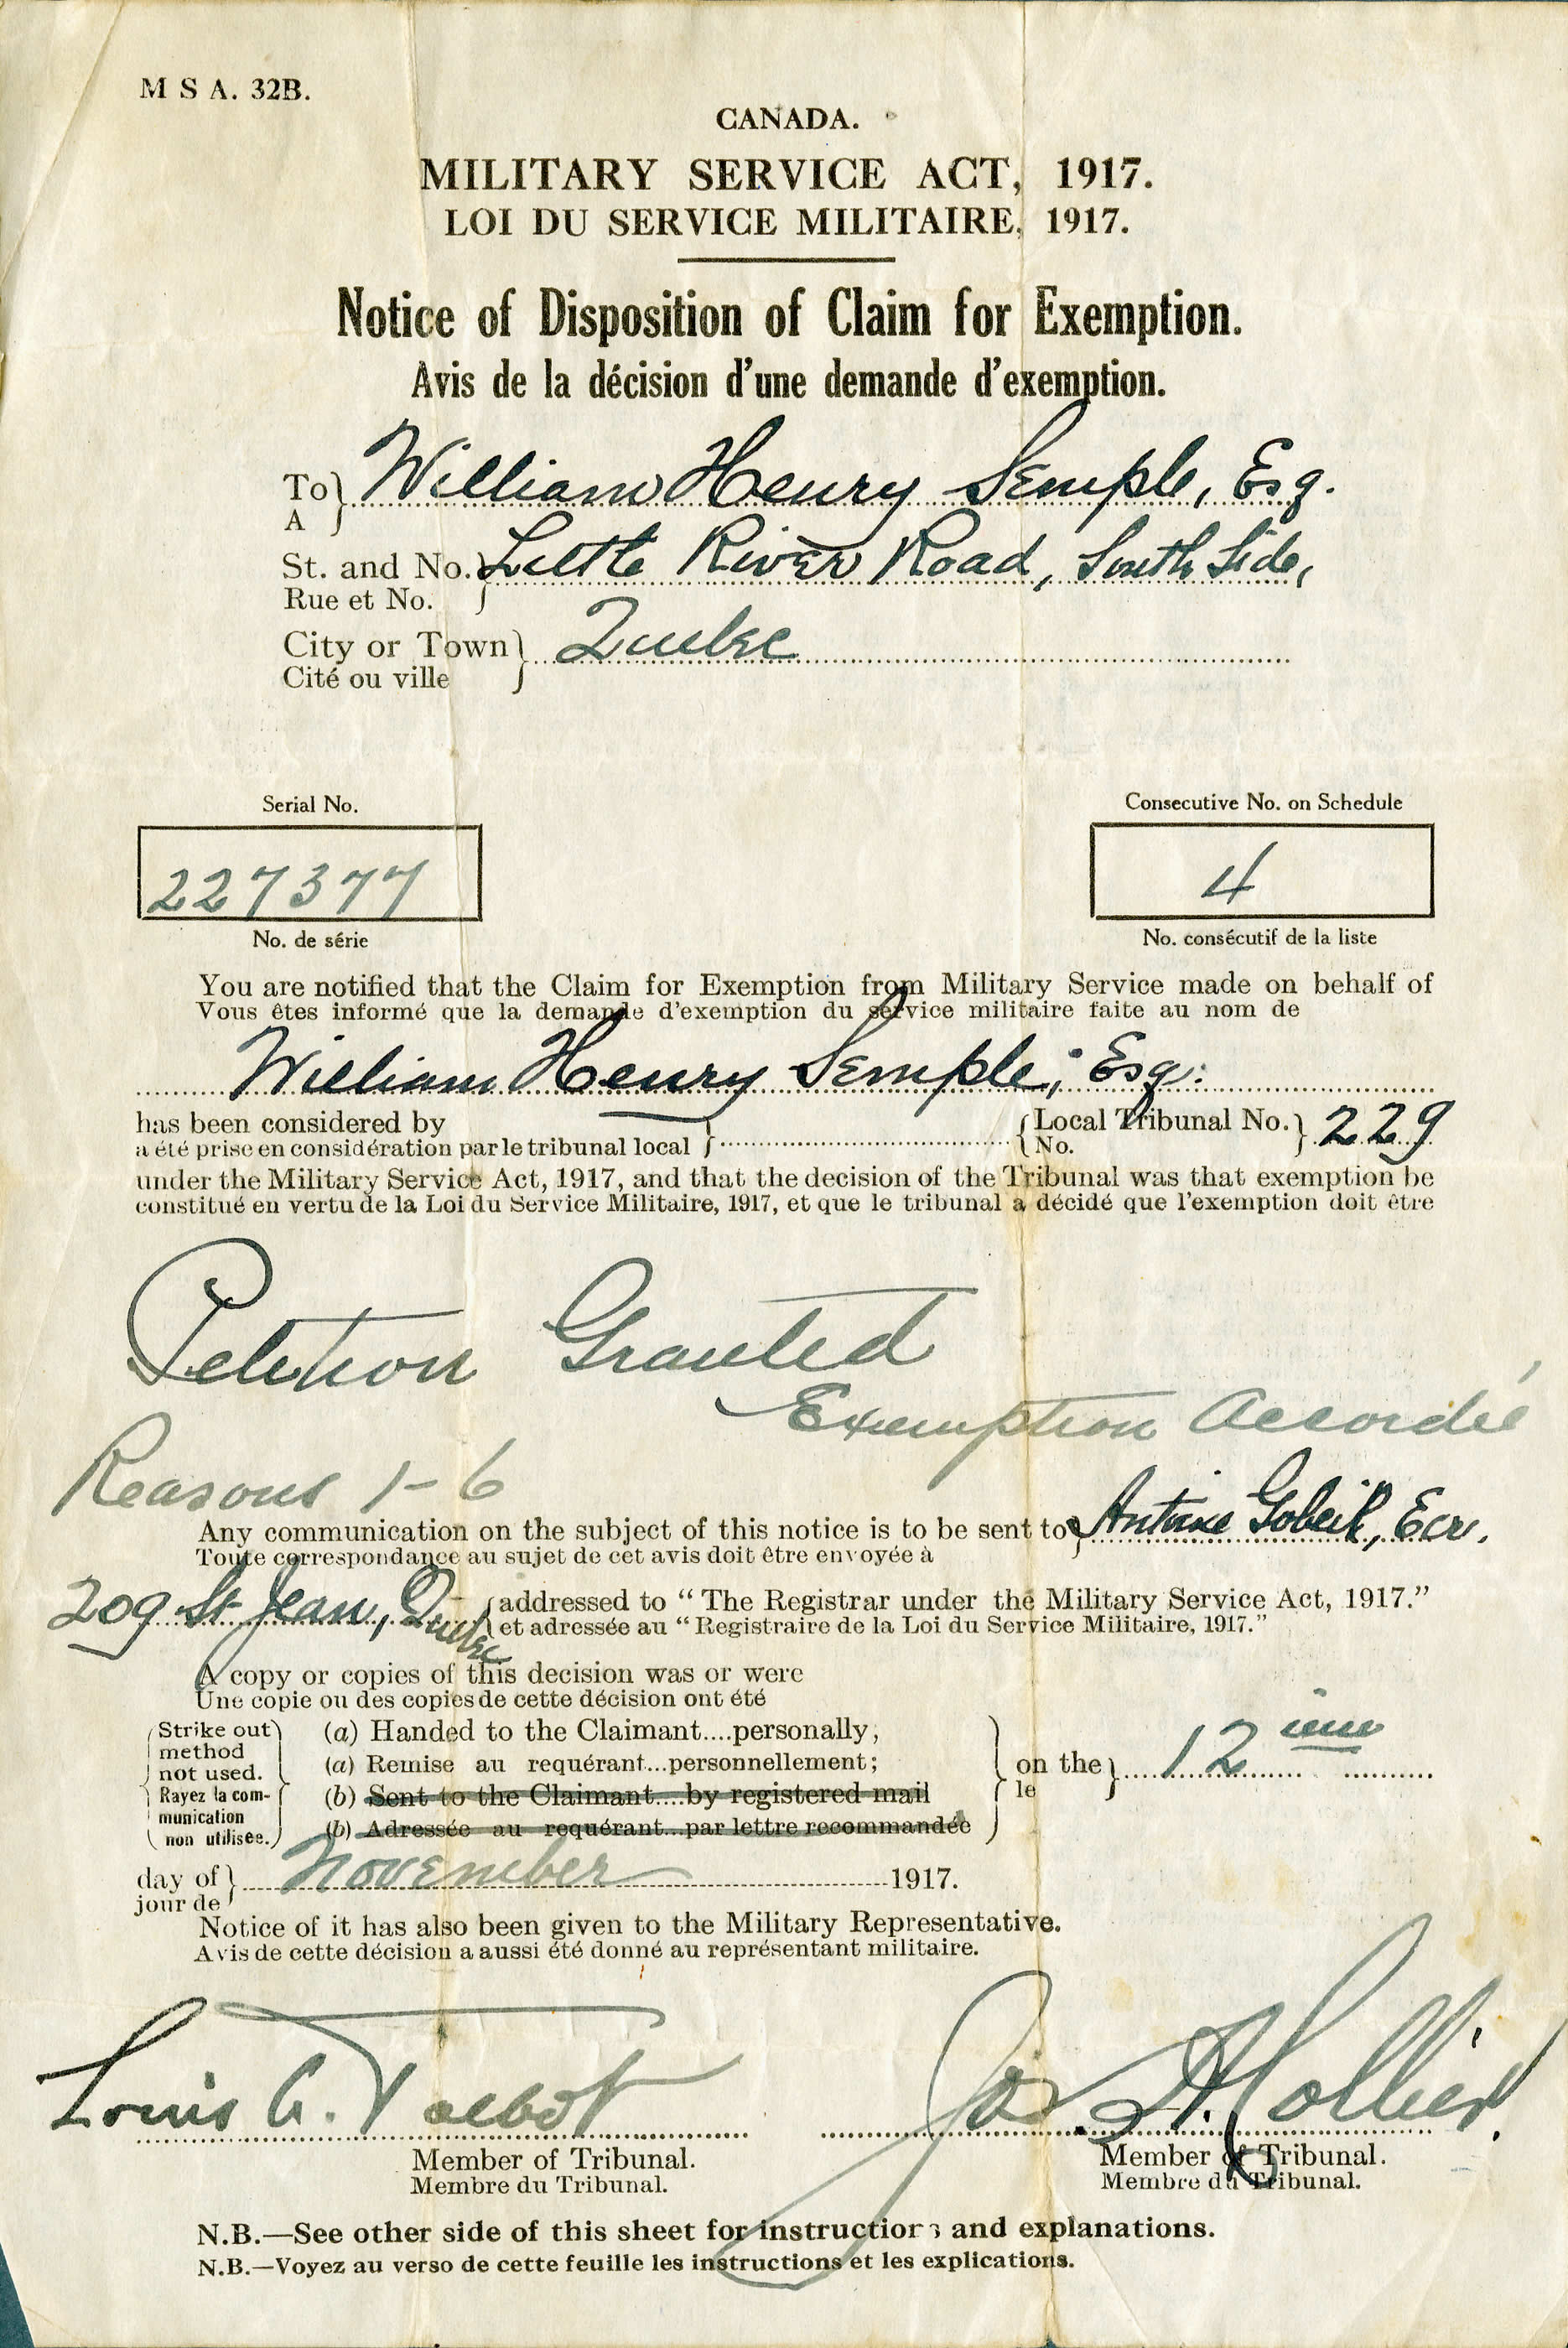 M S A. 32B.
CANADA.
MILITARY SERVICE ACT, 1917.
LOI DU SERVICE MILITAIRE, 1917.
Notice of Disposition of Claim for Exemption.
Avis de la décision d'une demande d'exemption.
To William Henry Semple, Esq.
A
St. and No. Little River Road, South Side,
Rue et No.
City or Town Quebec
Cité ou ville
Serial No. Consecutive No. on Schedule
227377 4
No. de série No. consécutif de la liste
You are notified that the Claim for Exemption from Military Service made on behalf of
Vous êtes informé que la demande d'exemption du service militaire faite au nom de
William Henry Semple, Esq.
has been considered by Local Tribunal No. 229
a été prise en considération par le tribunal local No.
under the Military Service Act, 1917, and that the decision of the Tribunal was that exemption be
constitué en vertu de la Loi du Service Militaire, 1917, et que le tribunal a décidé que l'exemption doit être
Petition Granted
Exemption Accordée
Reasons 1-6
Any communication on the subject of this notice is to be sent to Antoine Gobeil, Ecr.
Toute correspondance au sujet de cet avis doit être envoyée à
209 St Jean, Quebec addressed to "The Registrar under the Military Service Act, 1917."
et adressée au "Registraire de la Loi du Service Militaire, 1917."
A copy or copies of this decision was or were
Une copie ou des copies de cette décision ont été
Strike out (a) Handed to the Claimant....personally,
method
not used. (a) Remise au requérant....personnellement; on the 12 ième
Rayez la com- (b) Sent to the Claimant....by registered mail le
munication
non utilisée. (b) Adressée au requérant...par lettre recommandée
day of November 1917.
jour de
Notice of it has also been given to the Military Representative.
Avis de cette décision a aussi été donné au représentant militaire.
Louis A. Talbot Jos. A. Collier
Member of Tribunal. Member of Tribunal.
Membre du Tribunal. Membre du Tribunal.
N.B.—See other side of this sheet for instructions and explanations.
N.B.—Voyez au verso de cette feuille les instructions et les explications.